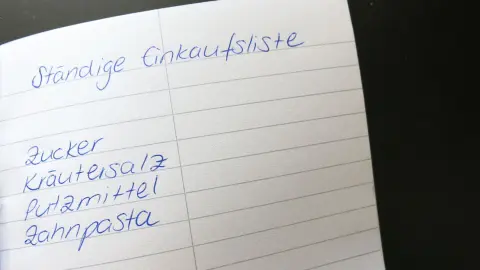 Ständige Einkaufsliste
Zucker
Kräutersalz
Putzmittel
Zahnpasta